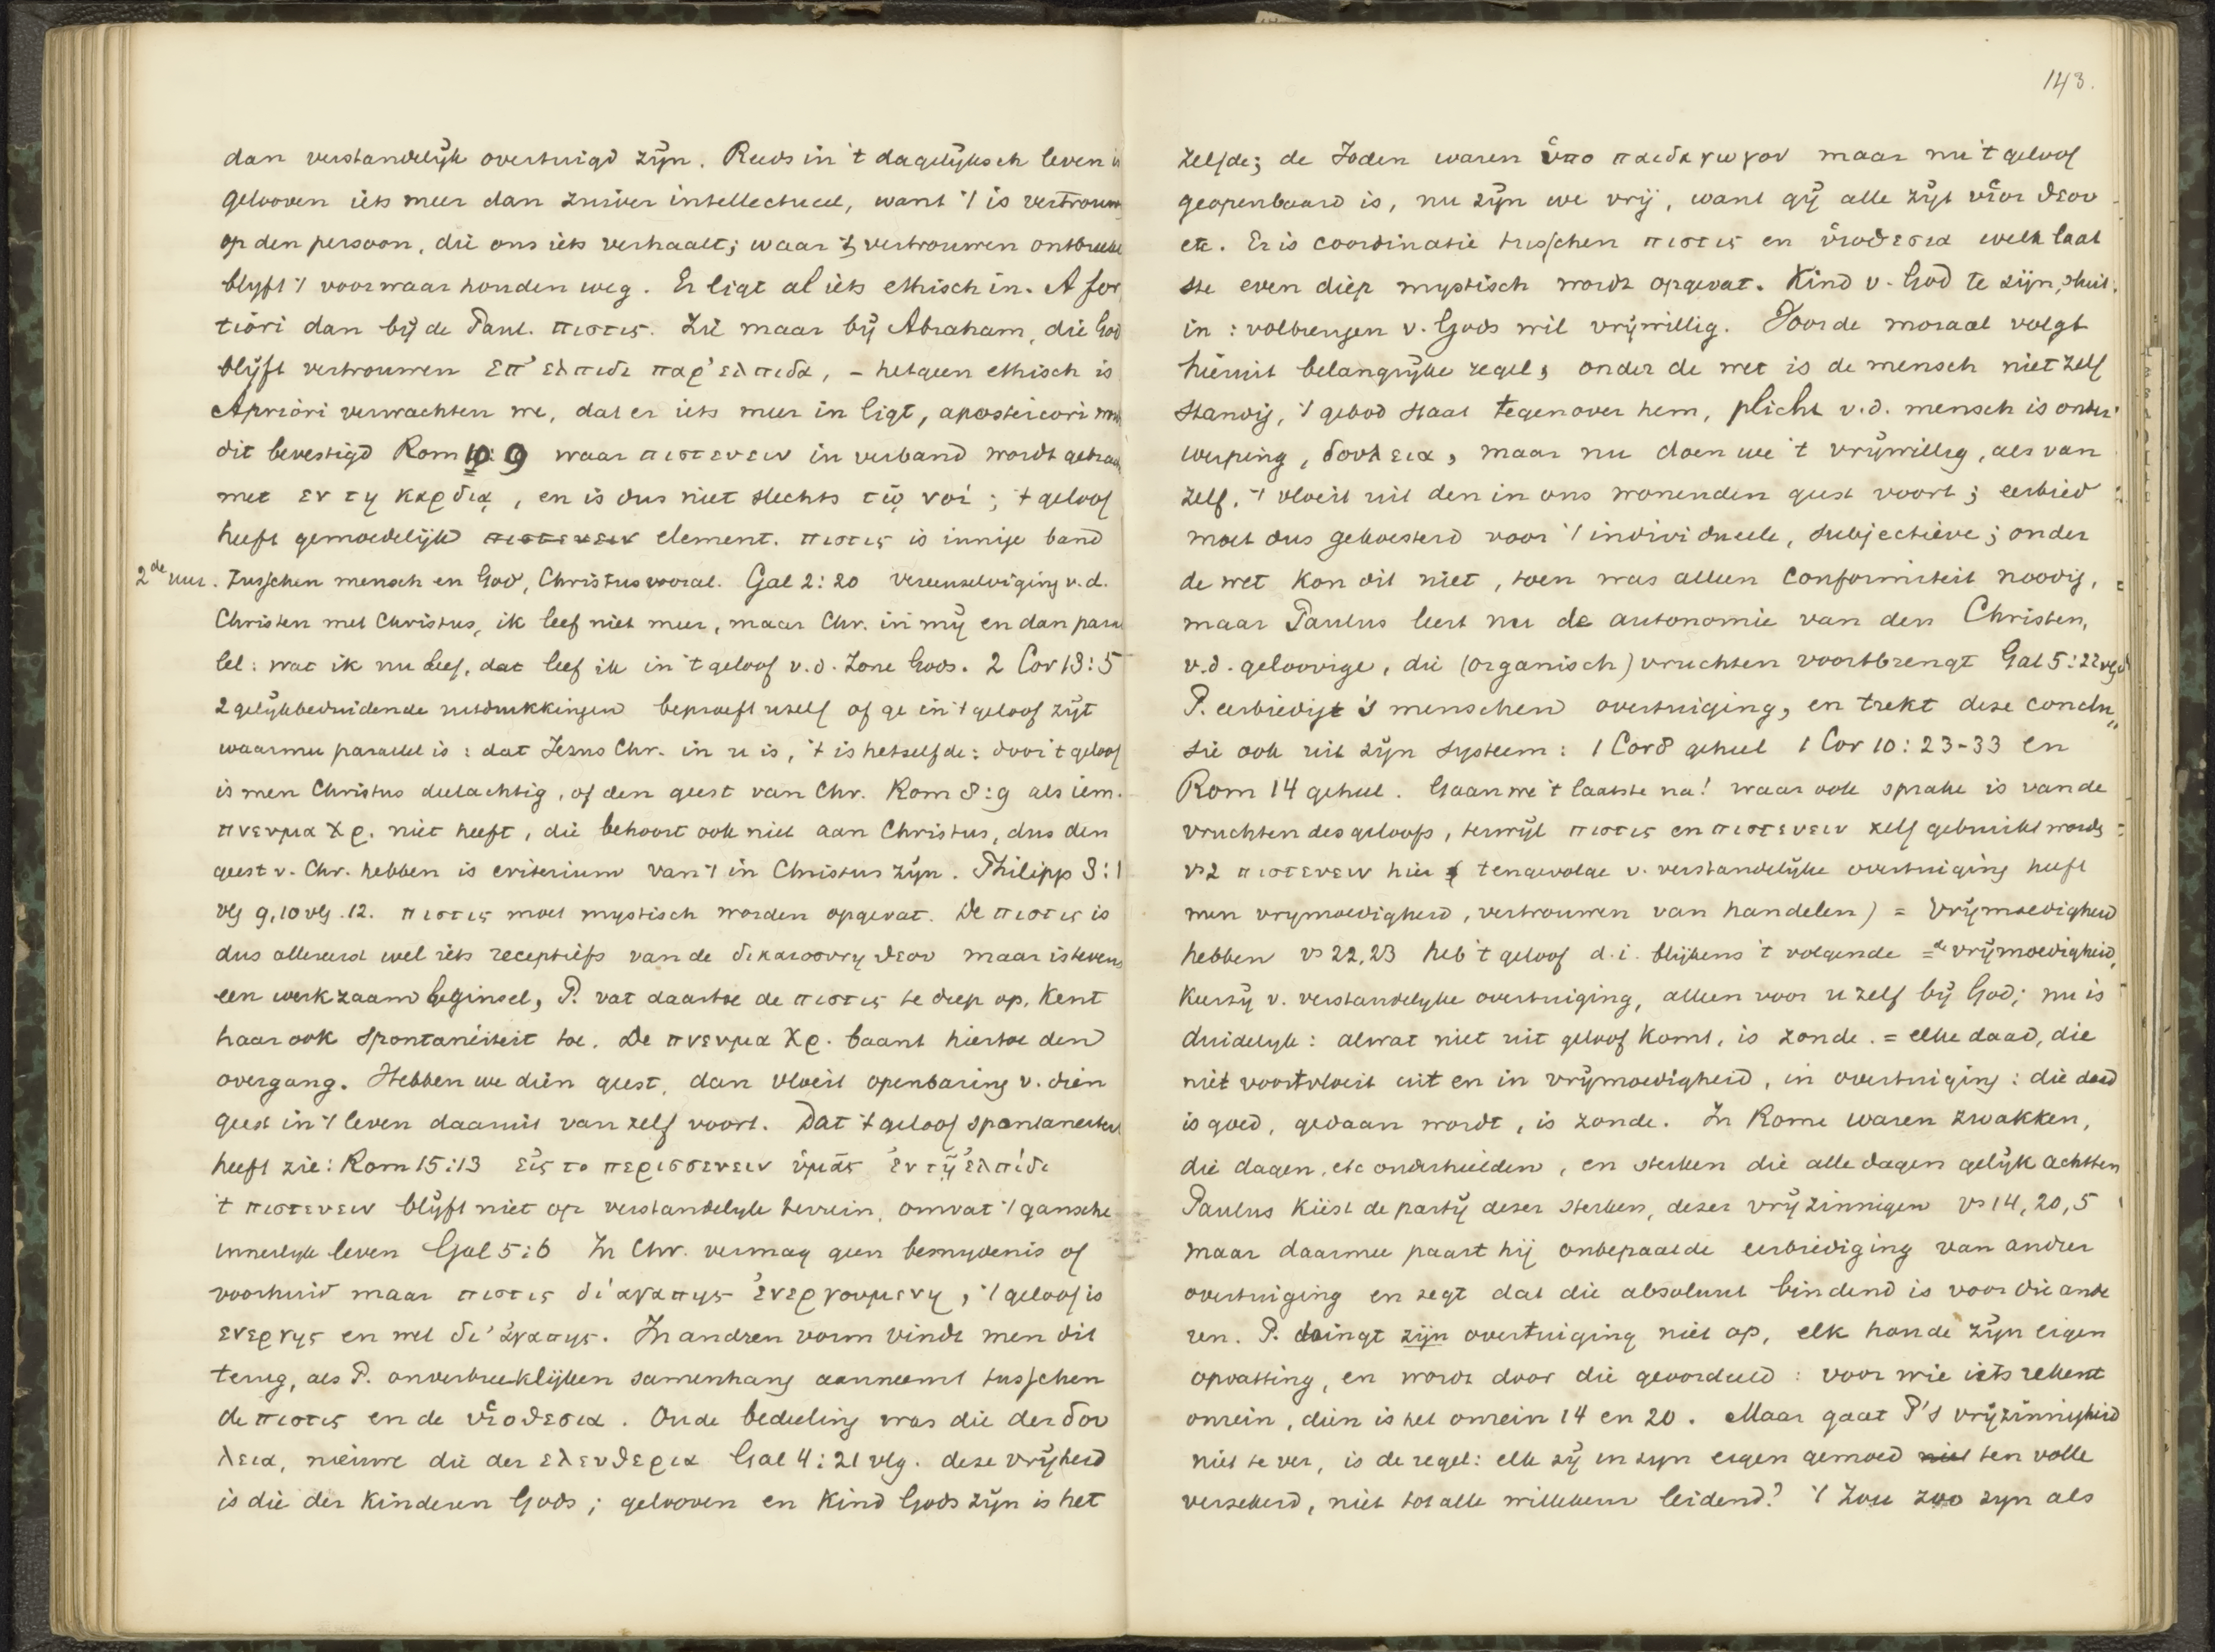 dan verstandelijk overtuigd zijn. Reeds in 't dagelijksch leven is
gelooven iets meer dan zuiver intellectueel, want 't is vertrouwen
op den persoon, die ons iets verhaalt; waar 't vertrouwen ontbreekt
blijft 't voorwaar houden weg. Er ligt al iets ethisch in. A for
tiori dan bij de Paul. πιστις. Zie maar bij Abraham, die God
blijft vertrouwen επ' ελπιδι παρ' ελπιδα, - hetgeen ethisch is
Apriori verwachten we, dat er iets meer in ligt, aposteriori wordt
dit bevestigd Rom 10:9 waar πιστευειν in verband wordt gebracht
met εν τη καρδιᾳ, en is dus niet slechts τῳ νοί; 't geloof
heeft gemoedelijk πιστευειν element. πιστις is innige band
2de uur. tusschen mensch en God, Christus vooral. Gal 2:20 vereenzelviging v.d.
Christen met Christus, ik leef niet meer, maar Chr. in mij en dan paral
lel: wat ik nu leef, dat leef ik in 't geloof v.d. Zone Gods. 2 Cor 13:5
2 gelijkbeduidende uitdrukkingen beproeft uzelf of ge in 't geloof zijt
waarmee parallel is: dat Jezus Chr. in u is, 't is hetzelfde: door 't geloof
is men Christus deelachtig, of den geest van Chr. Rom 8:9 als iem.
πνευμα Χρ. niet heeft, die behoort ook niet aan Christus, dus den
geest v. Chr. hebben is criterium van 't in Christus zijn. Philipp 3:1
vlg 9, 10 vlg. 12. πιστις moet mystisch worden opgevat. De πιστις is
dus allereerst wel iets receptiefs van de δικαιοσυνη θεου maar is tevens
een werkzaam beginsel, P. vat daartoe de πιστις te diep op, kent
haar ook spontaneïteit toe. De πνευμα Χρ. baant hiertoe den
overgang. Hebben we dien geest, dan vloeit openbaring v. dien
geest in 't leven daaruit van zelf voort. Dat 't geloof spontaneiteit
heeft zie: Rom 15:13 εἰς το περισσευειν ὑμᾶς ἐν τῇ ἐλπίδι
't πιστευειν blijft niet op verstandelijk terrein, omvat 't gansche
innerlijk leven Gal 5:6 In Chr. vermag geen besnijdenis of
voorhuid maar πιστις δι' αγαπης ἐνεργουμενη, 't geloof is
ενεργης en wel δι' ἀγαπης. In andren vorm vindt men dit
terug, als P. onverbreeklijken samenhang aanneemt tusschen
de πιστις en de υἱοθεσια. Oude bedeeling was die der δου
λεια, nieuwe die der ελευθερια Gal 4:21 vlg. deze vrijheid
is die der kinderen Gods; gelooven en kind Gods zijn is het
143.
zelfde; de Joden waren ὑπο παιδαγωγον maar nu 't geloof
geopenbaard is, nu zijn we vrij, want gij alle zijt υἱοι θεου
etc. Er is coordinatie tusschen πιστις en υἱοθεσια welk laat
ste even diep mystisch wordt opgevat. Kind v. God te zijn, sluit
in: volbrengen v. Gods wil vrijwillig. Voor de moraal volgt
hieruit belangrijke regel; onder de wet is de mensch niet zelf
standig, 't gebod staat tegenover hem, plicht v.d. mensch is onder
werping, δουλεια, maar nu doen we 't vrijwillig, als van
zelf, 't vloeit uit den in ons wonenden geest voort; eerbied
moet dus gekoesterd voor 't individueele, subjectieve; onder
de wet kon dit niet, toen was alleen conformiteit noodig,
maar Paulus leert nu de autonomie van den Christen,
v.d. geloovige, die (organisch) vruchten voortbrengt Gal 5:22 vlg
P. eerbiedigt 's menschen overtuiging, en trekt deze conclu
sie ook uit zijn systeem: 1 Cor 8 geheel 1 Cor 10:23-33 en
Rom 14 geheel. Gaan we 't laatste na! waar ook sprake is van de
vruchten des geloofs, terwijl πιστις en πιστευειν zelf gebruikt wordt
vs 2 πιστευειν hier ( tengevolge v. verstandelijke overtuiging heeft
men vrijmoedigheid, vertrouwen van handelen) = vrijmoedigheid
hebben vs 22, 23 heb 't geloof d.i. blijkens 't volgende = de vrijmoedigheid,
kurzij v. verstandelijke overtuiging, alleen voor u zelf bij God; nu is
duidelijk: alwat niet uit geloof komt, is zonde. = elke daad, die
niet voortvloeit uit en in vrijmoedigheid, in overtuiging: die daad
is goed, gedaan wordt, is zonde. In Rome waren zwakken,
die dagen, etc onderhielden, en sterken die alle dagen gelijk achtten
Paulus kiest de partij dezer sterken, dezer vrijzinnigen vs 14, 20, 5
maar daarmee paart hij onbepaalde eerbiediging van andrer
overtuiging en zegt dat die absoluut bindend is voor die ande
ren. P. dringt zijn overtuiging niet op, elk houde zijn eigen
opvatting, en wordt door die geoordeeld: voor wie iets rekent
onrein, dien is het onrein 14 en 20. Maar gaat P's vrijzinnigheid
niet te ver, is de regel: elk zij in zijn eigen gemoed niet ten volle
verzekerd, niet tot alle willekeur leidend? 't Zou zoo zijn als